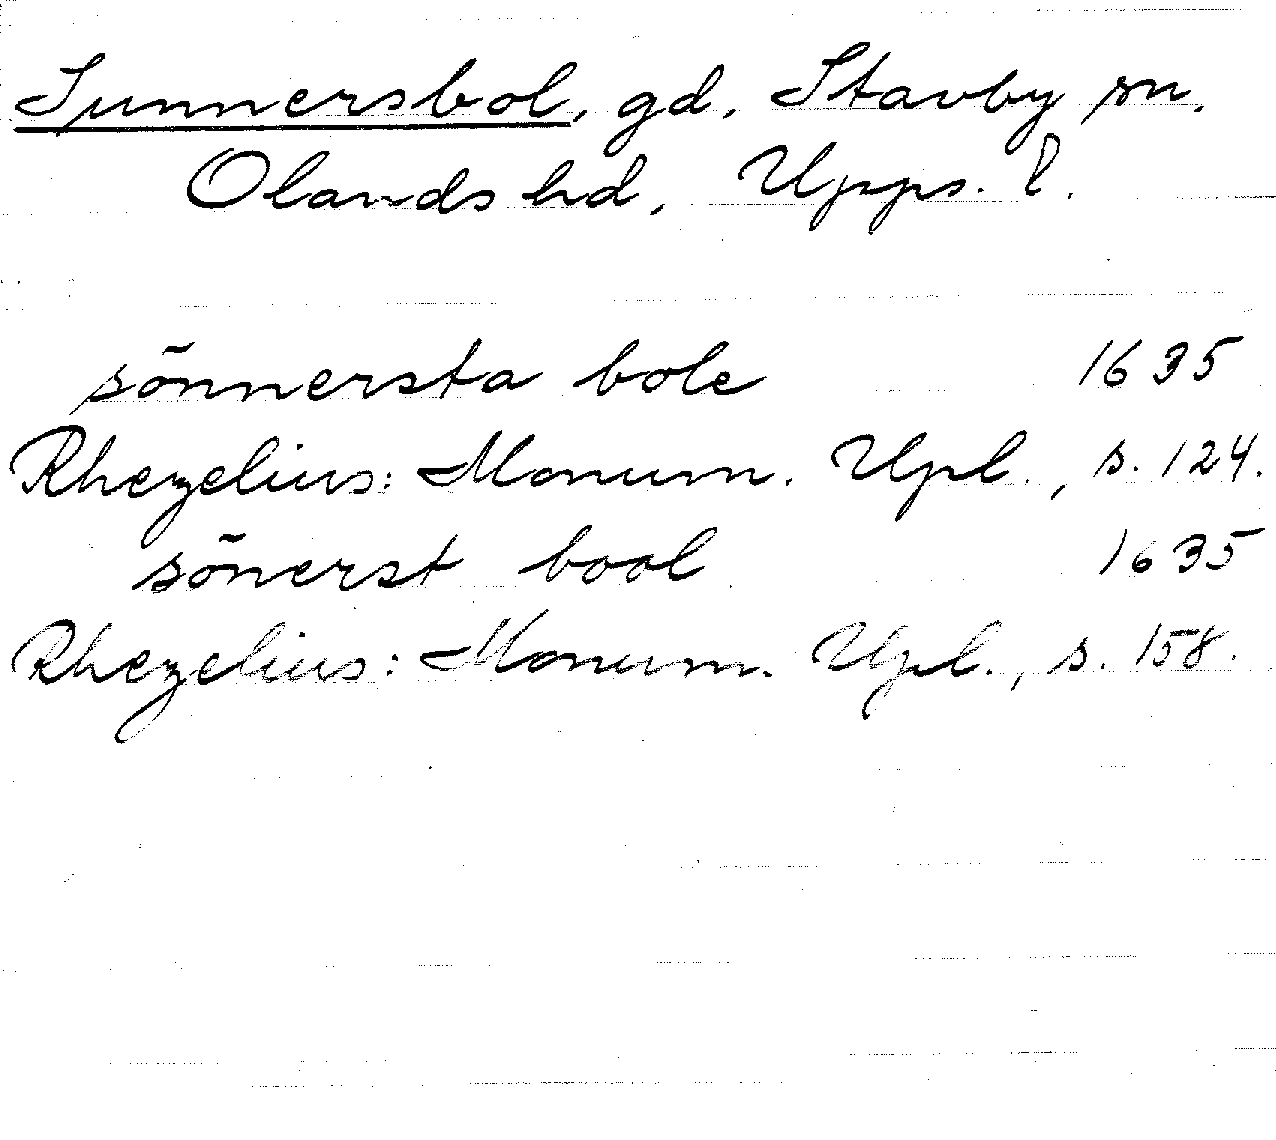 Sunnersbol, gd, Stavby sn.
Olands hd, Upps. l.
sõnnersta bole 1635
Rhezelius: Monum. Upl., s. 124.
sõnerst bool 1635
Rhezelius: Monum. Upl., s. 158.